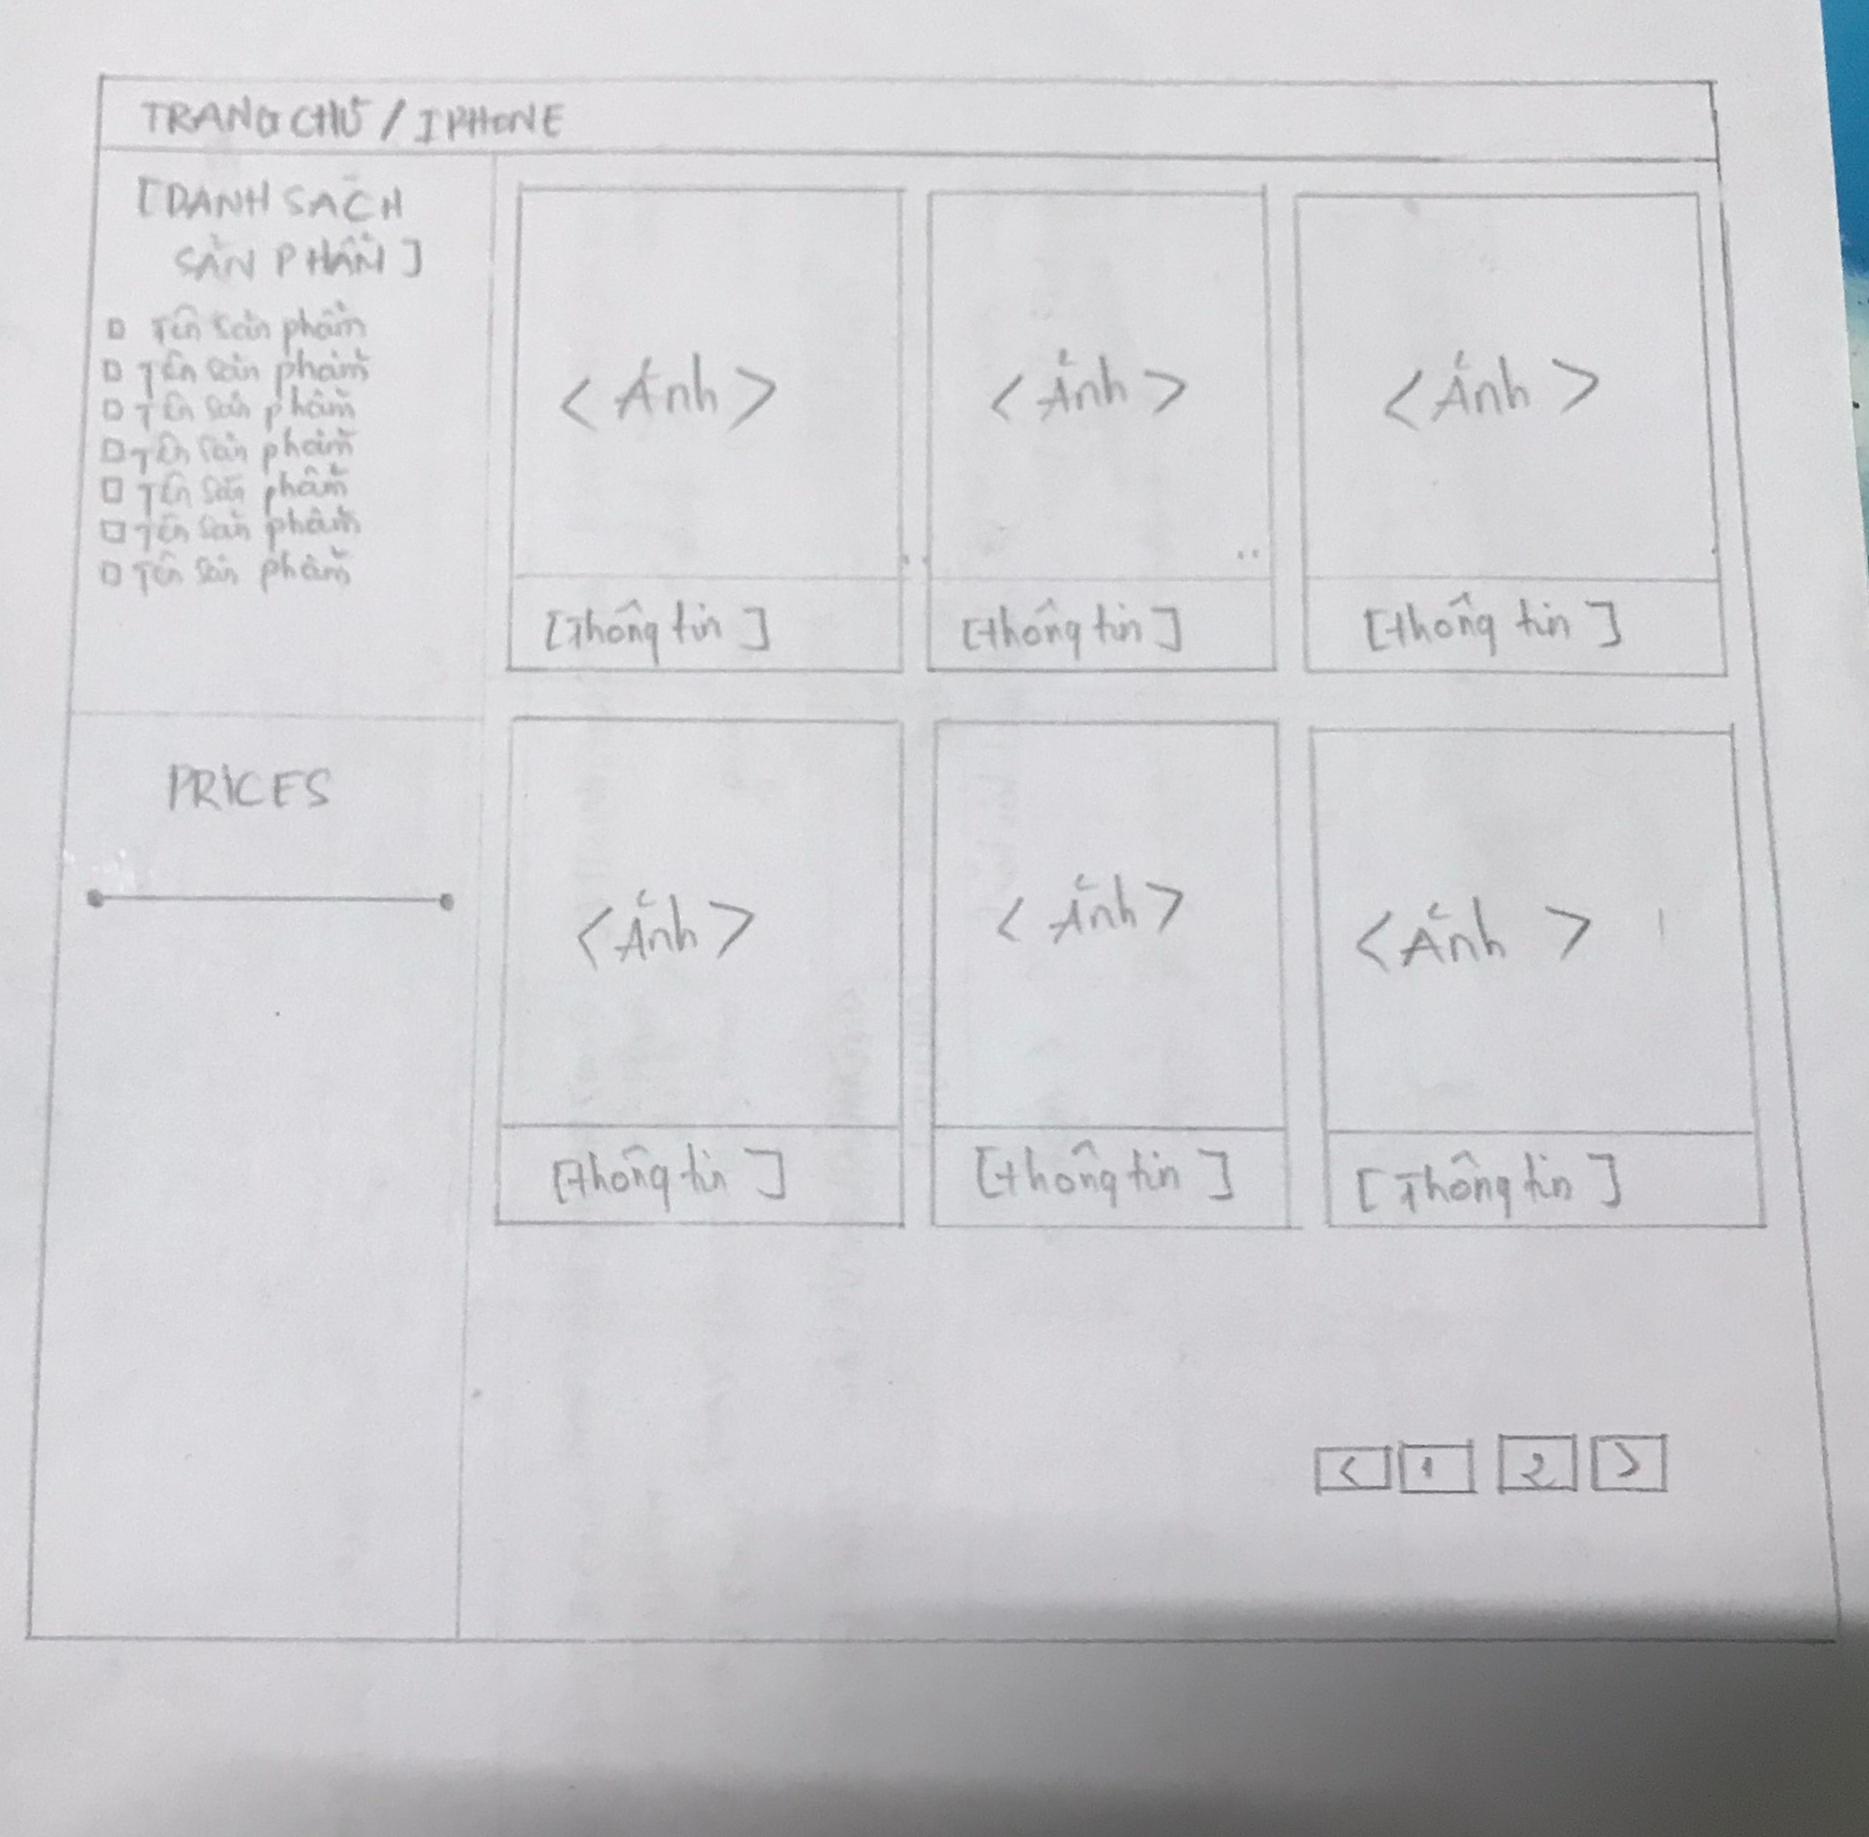 TRANG CHỦ / IPHONE
[DANH SÁCH
SẢN PHẨM]
Tên sản phẩm
Tên sản phẩm
Tên sản phẩm
Tên sản phẩm
Tên sản phẩm
Tên sản phẩm
Tên sản phẩm
PRICES
<Ảnh> <Ảnh> <Ảnh>
[Thông tin] [thông tin] [thông tin]
<Ảnh> <Ảnh> <Ảnh>
[thông tin] [thông tin] [Thông tin]
< 1 2 >